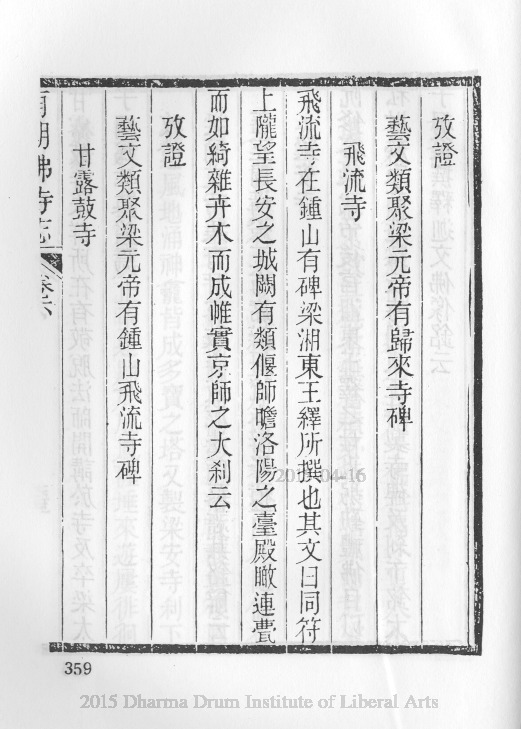 攷證
藝文類聚梁元帝有歸來寺碑
飛流寺
飛流寺在鍾山有碑梁湘東王繹所撰也其文曰同符
上隴望長安之城闕有類偃師瞻洛陽之臺殿瞰連甍
而如綺雜卉木而成帷實京師之大刹云
攷證
藝文類聚梁元帝有鍾山飛流寺碑
甘露鼓寺
南朝佛寺志 卷六
359
2015 Dharma Drum Institute of Liberal Arts